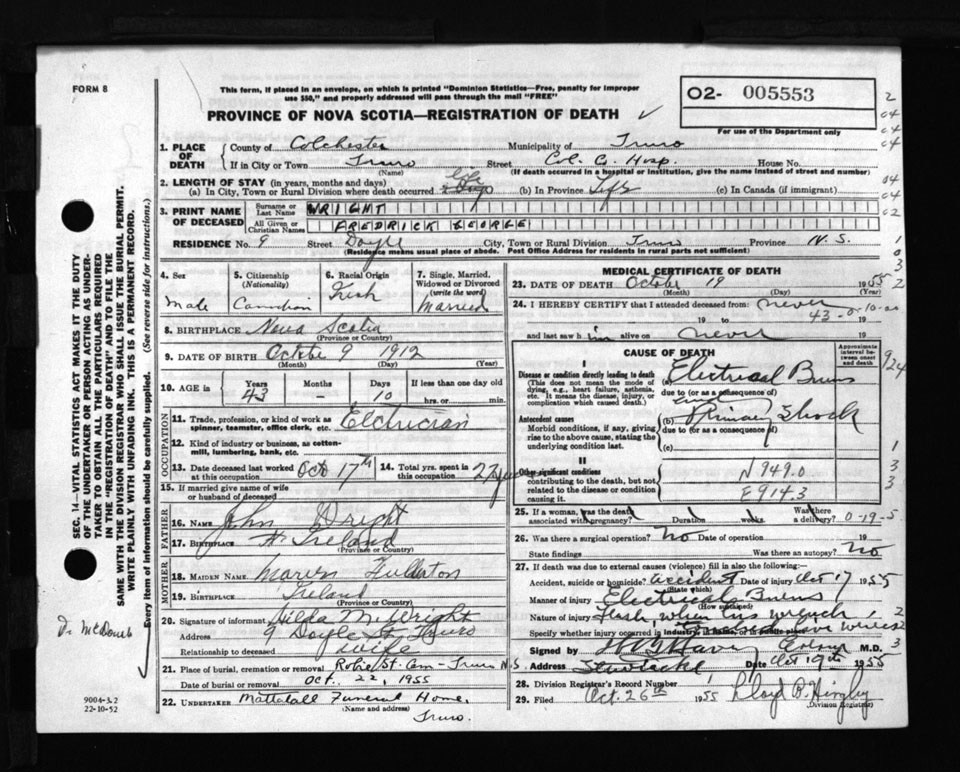 FORM 8
This form, if placed in an envelope, on which is printed "Dominion Statistics—Free, penalty for improper
use $50," and properly addressed will pass through the mail "FREE"
02- 005553
For use of the Department only
PROVINCE OF NOVA SCOTIA—REGISTRATION OF DEATH
1. PLACE OF DEATH
County of Colchester Municipality of Truro
If in City or Town Truro (Name) Street Col. C. Hosp. House No.
(If death occurred in a hospital or institution, give the name instead of street and number)
2. LENGTH OF STAY (in years, months and days)
(a) In City, Town or Rural Division where death occurred Life (b) In Province Life (c) In Canada (if immigrant)
3. PRINT NAME OF DECEASED
Surname or Last Name WRIGHT
All Given or Christian Names FREDRICK GEORGE
RESIDENCE No. 9 Street Doyle City, Town or Rural Division Truro Province N.S.
(Residence means usual place of abode. Post Office Address for residents in rural parts not sufficient)
4. Sex
Male
5. Citizenship (Nationality)
Canadian
6. Racial Origin
Irish
7. Single, Married, Widowed or Divorced (write the word)
Married
8. BIRTHPLACE Nova Scotia
(Province or Country)
9. DATE OF BIRTH Octobe 9 1912
(Month) (Day) (Year)
10. AGE in
Years Months Days If less than one day old
43 - 10 hrs. or min.
OCCUPATION
11. Trade, profession, or kind of work as Elctrician
spinner, teamster, office clerk, etc.
12. Kind of industry or business, as cotton-
mill, lumbering, bank, etc.
13. Date deceased last worked at this occupation Oct 17th
14. Total yrs. spent in this occupation 22 yrs
15. If married give name of wife
or husband of deceased
FATHER
16. NAME John Wright
17. Birthplace N. Ireland
(Province or Country)
MOTHER
18. MAIDEN NAME Fullerton
19. BIRTHPLACE Ireland
(Province or Country)
20. Signature of informant Hilda M. Wright
Address 9 Doyle St. Truro
Relationship to deceased wife
21. Place of burial, cremation or removal Robie St. Cem - Truro N.S
Date of burial or removal Oct. 22, 1955
22. UNDERTAKER Mattatall Funeral Home,
(Name and address)
Truro.
MEDICAL CERTIFICATE OF DEATH
23. DATE OF DEATH October 19 1955
(Month) (Day) (Year)
24. I HEREBY CERTIFY that I attended deceased from: never
19 to 19
43-0-10-00
and last saw him alive on never 19
CAUSE OF DEATH
Approximate interval between onset and death
I
Disease or condition directly leading to death
(This does not mean the mode of dying, e.g., heart failure, asthenia, etc. It means the disease, injury, or complication which caused death.)
(a) Electrical Burns
due to (or as a consequence of)
Antecedent causes
Morbid conditions, if any, giving rise to the above cause, stating the underlying condition last.
(b) Primary Shock
due to (or as a consequence of)
(c)
II
Other significant conditions
contributing to the death, but not related to the disease or condition causing it.
N 949.0
E 914.3
924
25. If a woman, was the death associated with pregnancy? Duration weeks. Was there a delivery?
0-19-5
26. Was there a surgical operation? No Date of operation 19
State findings Was there an autopsy? No
27. If death was due to external causes (violence) fill in also the following:
Accident, suicide or homicide? accident Date of injury Oct 17 1955
(State which)
Manner of injury Electrical Burns
(How sustained)
Nature of injury Flash when his wrench
Specify whether injury occurred in industry, in home, or in public place wires
Signed by M.D.
Address Stewiacke Date Oct 19th 1955
28. Division Registrar's Record Number
29. Filed Oct. 26th 1955 Lloyd B. Hingley
(Division Registrar)
SEC. 14—VITAL STATISTICS ACT MAKES IT THE DUTY
OF THE UNDERTAKER OR PERSON ACTING AS UNDER-
TAKER TO OBTAIN ALL THE PARTICULARS REQUIRED
IN THE "REGISTRATION OF DEATH" AND TO FILE THE
SAME WITH THE DIVISION REGISTRAR WHO SHALL ISSUE THE BURIAL PERMIT.
WRITE PLAINLY WITH UNFADING INK. THIS IS A PERMANENT RECORD.
Every item of information should be carefully supplied. (See reverse side for instructions.)
9004-3.2
22-10-52
2
04
04
04
04
04
02
1
0
3
2
1
3
3
2
3